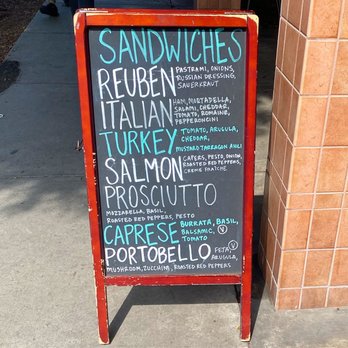 SANDWICHES
REUBEN PASTRAMI, ONIONS,
RUSSIAN DRESSING,
SAUERKRAUT
ITALIAN HAM, MORTADELLA,
SALAMI, CHEDDAR,
TOMATO, ROMAINE,
PEPPERONCINI
TURKEY TOMATO, ARUGULA,
CHEDDAR,
MUSTARD TARRAGON AIOLI
SALMON CAPERS, PESTO, ONION,
ROASTED RED PEPPERS,
CREME FRAÎCHE
PROSCIUTTO
MOZZARELLA, BASIL,
ROASTED RED PEPPERS, PESTO
CAPRESE BURRATA, BASIL,
BALSAMIC,
TOMATO V
PORTOBELLO V FETA,
ARUGULA,
MUSHROOM, ZUCCHINI, ROASTED RED PEPPERS